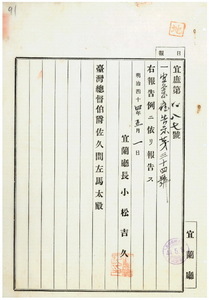 日報
宜庶第一八七號
一宜蘭廳告示第三十四號
右報告例ニ依リ報告ス
明治四十四年五月一日
宜蘭廳長小松吉久
臺灣總督伯爵佐久間左馬太殿
宜蘭廳